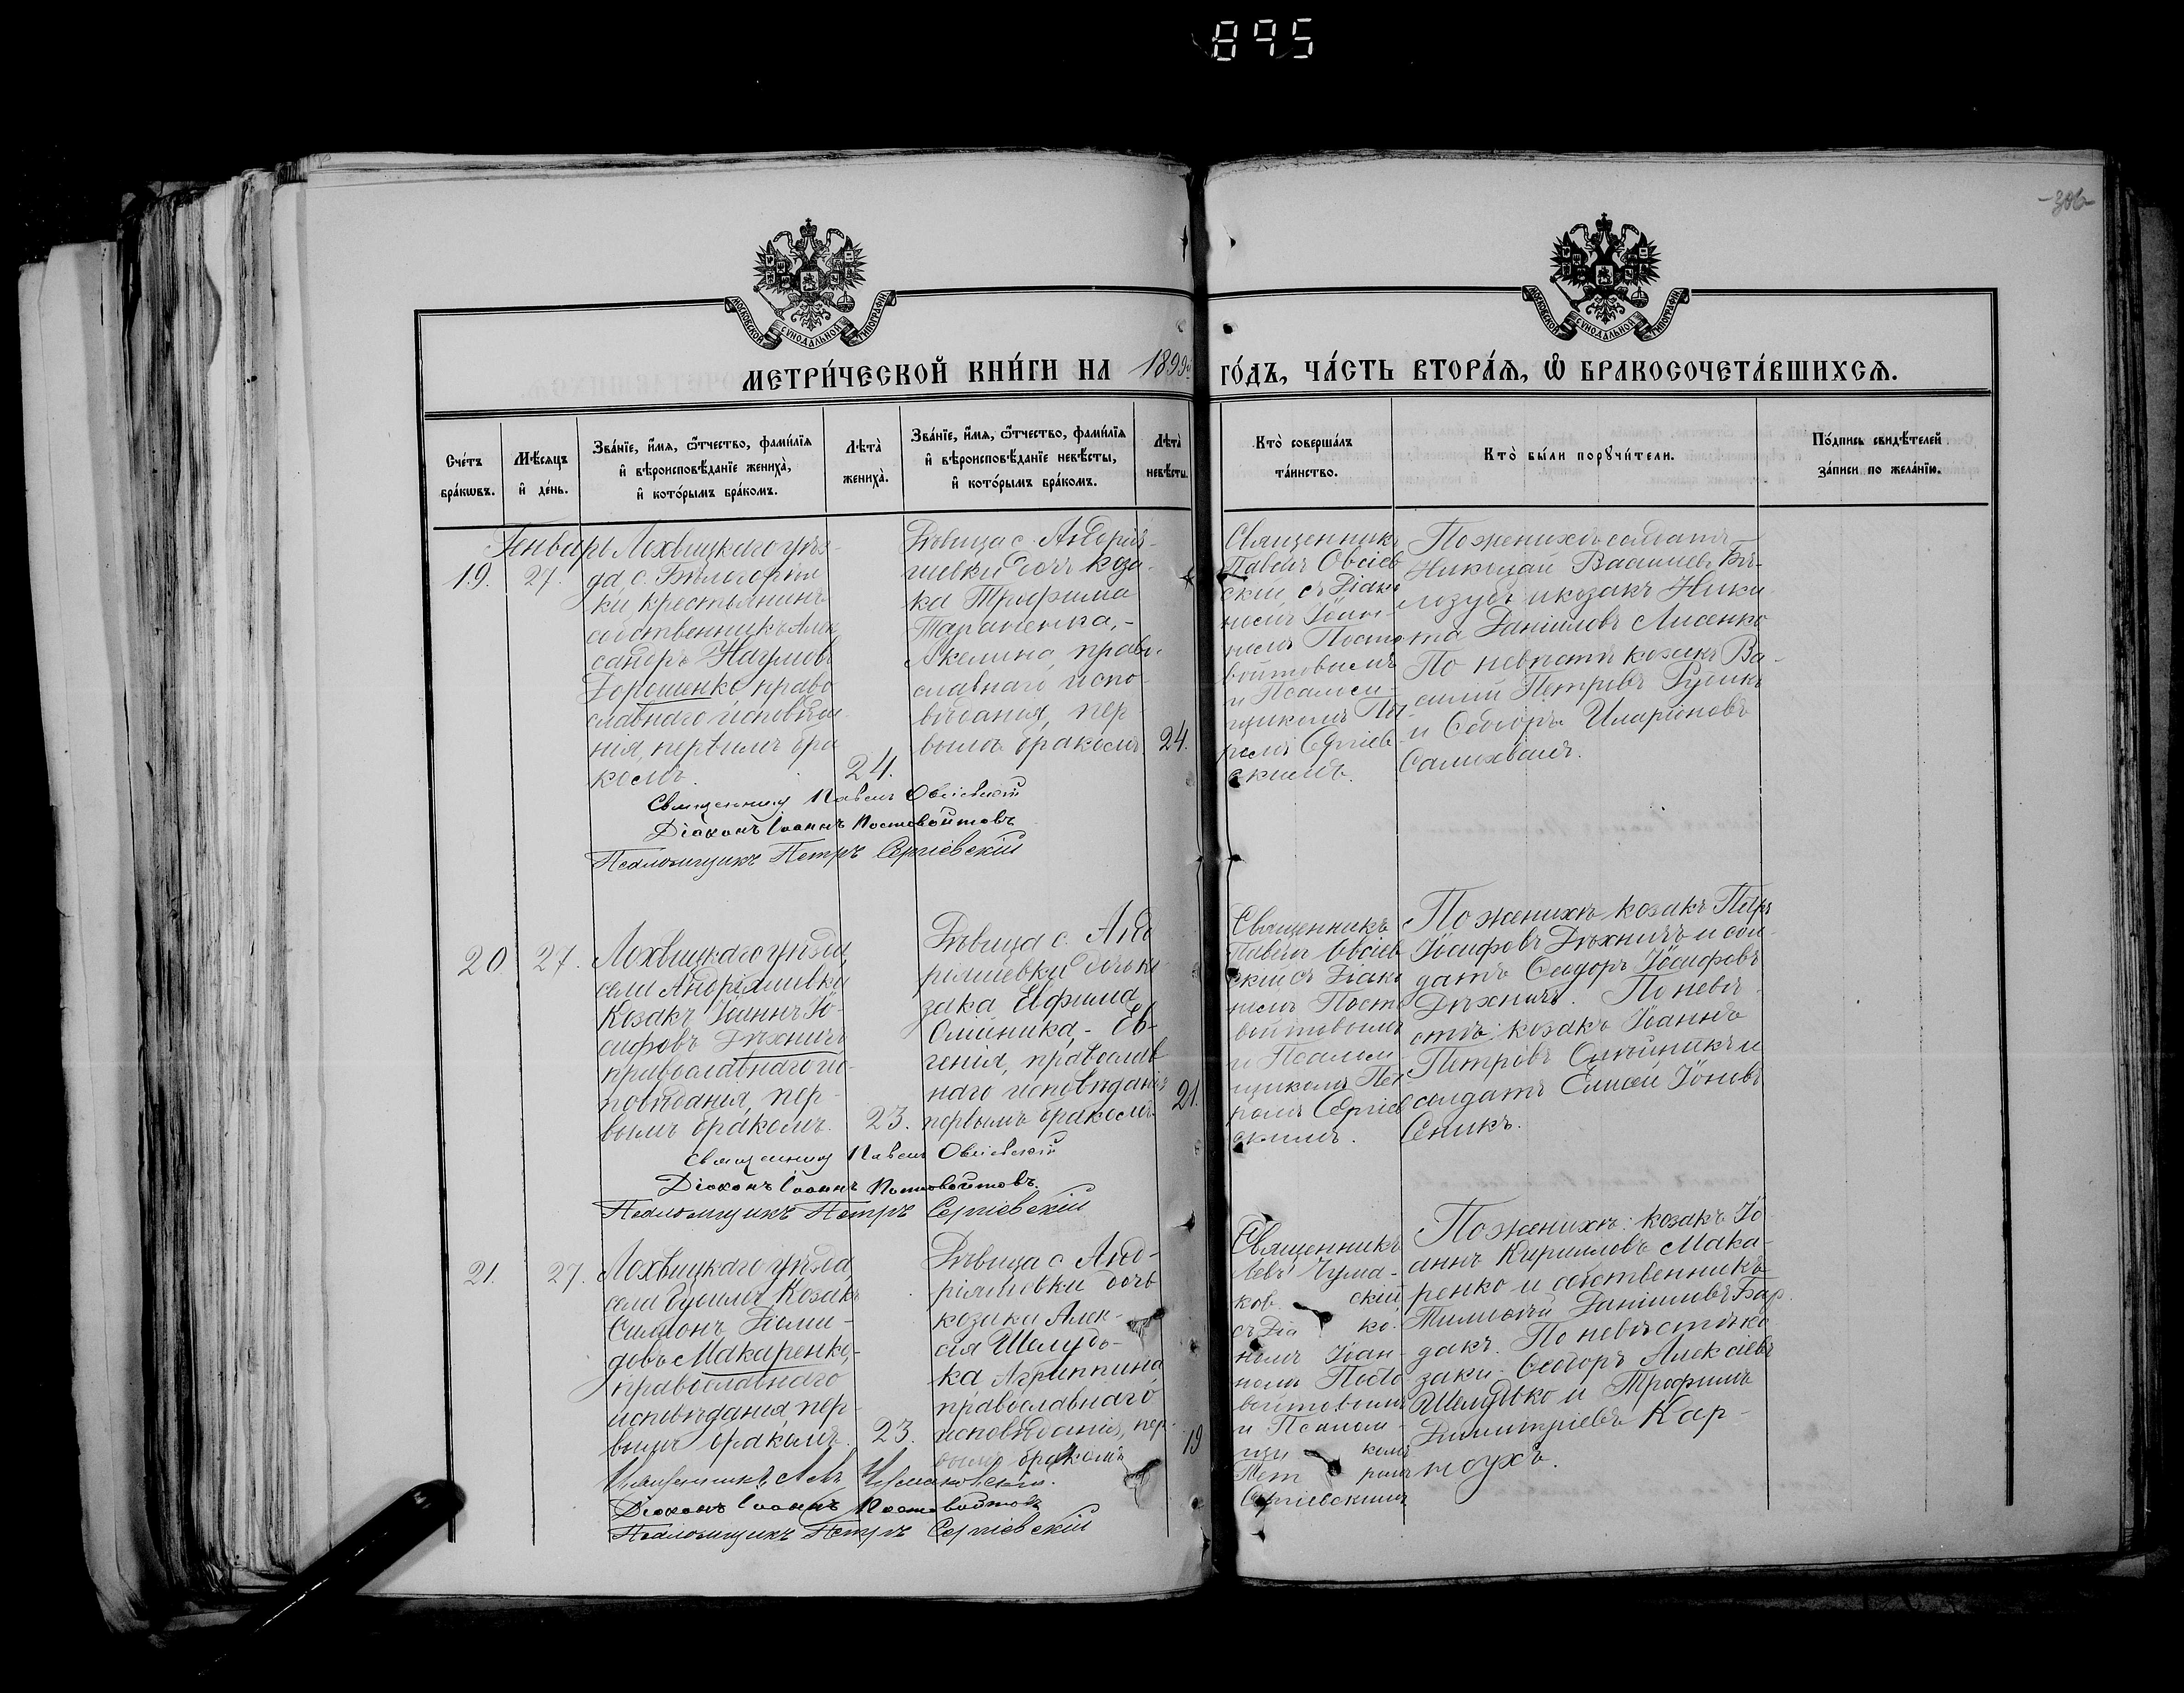 895
-306-
МОСКОВСКОЙ СѴНОДАЛЬНОЙ ТИПОГРАФІИ
МОСКОВСКОЙ СѴНОДАЛЬНОЙ ТИПОГРАФІИ
МЕТРИ́ЧЕСКОЙ КНИ́ГИ НА 1899й ГО́ДЪ, ЧА́СТЬ ВТОРА́Я, Ѡ БРАКОСОЧЕТА́ВШИХСЯ.
Сче́тъ
бра́кѡвъ.
Мѣ́сяцъ
и҆ де́нь.
Зва́нїе, и҆́мя, ѻ҆́тчество, фами́лїя
и҆ вѣроисповѣ́данїе жениха̀,
и҆ кото́рымъ бра́комъ.
Лѣта̀
жениха̀.
Зва́нїе, и҆́мя, ѻ҆́тчество, фами́лїя
и҆ вѣроисповѣ́данїе невѣ́сты,
и҆ кото́рымъ бра́комъ.
Лѣта̀
невѣ́сты.
Кто̀ соверша́лъ
та́инство.
Кто̀ бы́ли порꙋчи́тели.
По́дпись свидѣ́телей
за́писи по жела́нїю.
Январь
19.
27.
Лохвицкаго уѣз-
да, с. Бѣлогорил
ки крестьянинъ
собственникъ Алек
сандръ Наумовъ
Дорошенко право
славнаго исповѣда
нія, первымъ бра
комъ.
24.
Дѣвица с. Андрія-
шевки дочь коза-
ка Трофима
Тараненка,-
Акелина, право-
славнаго испо-
вѣданія, пер-
вымъ бракомъ
24.
Священникъ
Павелъ Овсіев
скій съ Діако
номъ Іоан-
номъ Посто
войтовымъ
и Псаломщи-
щикомъ Пет
ромъ Сергіев-
скимъ.
По женихѣ солдатъ
Николай Васильевъ Бѣ-
лозубъ и козакъ Ники
та Даніиловъ Лисенко
По невѣстѣ козакъ Ва-
силій Петровъ Рудикъ
и Ѳеодоръ Иларіоновъ
Самохвалъ.
Священникъ Павелъ Овсіевскій
Діаконъ Іоаннъ Постовойтовъ
Псаломщикъ Петръ Сергіевскій
20
27.
Лохвицкаго уѣзда
села Андріяшевки
Козакъ Іоаннъ Іо-
сифовъ Дѣхничъ
православнаго ис-
повѣданія, пер-
вымъ бракомъ.
23.
Дѣвица с. Анд
ріяшевки дочь ко
зака Евфима
Олійника,- Ев-
генія, православ
наго исповѣданія
первымъ бракомъ
21.
Священникъ
Павелъ Овсіев
скій съ Діако
номъ Посто
войтовымъ
и Псалом
щикомъ Пет
ромъ Сергіев
скимъ.
По женихѣ козакъ Петръ
Іосифовъ Дѣхничъ и сол-
датъ Сидоръ Іосифовъ
Дѣхничъ. По невѣ-
стѣ: козакъ Іоаннъ
Петровъ Олѣйникъ и
солдатъ Елисей Іоновъ
Сеникъ.
Священникъ Павелъ Овсіевскій
Діаконъ Іоаннъ Постовойтовъ.
Псаломщикъ Петръ Сергіевскій
21.
27.
Лохвицкаго уѣзда,
села Гусимъ Козакъ
Симеонъ
довъ Макаренко,
православнаго
исповѣданія, пер-
вымъ бракомъ.
23.
Дѣвица с Анд-
ріяшевки дочь
козака Алек-
сія Шелудь-
ка Агриппина
православнаго
исповѣданія, пер-
вымъ бракомъ
19
Священникъ
Левъ Чума-
ков скій
съ Діа ко-
номъ Іоан-
номъ Посто
войтовымъ
и Псалом-
щи комъ
Пет ромъ
Сергіевскимъ
По женихѣ: козакъ Іо
аннъ Кирилловъ Мака-
ренко и собственникъ
Тимофей Даніиловъ Бар-
дакъ. По невѣстѣ: ко
заки Ѳеодоръ Алексіевъ
Шелудько и Трофимъ
Димитріевъ Кар-
поухъ.
Священникъ Левъ Чумаковскій.
Діаконъ Іоаннъ Постовойтовъ
Псаломщикъ Петръ Сергіевскій